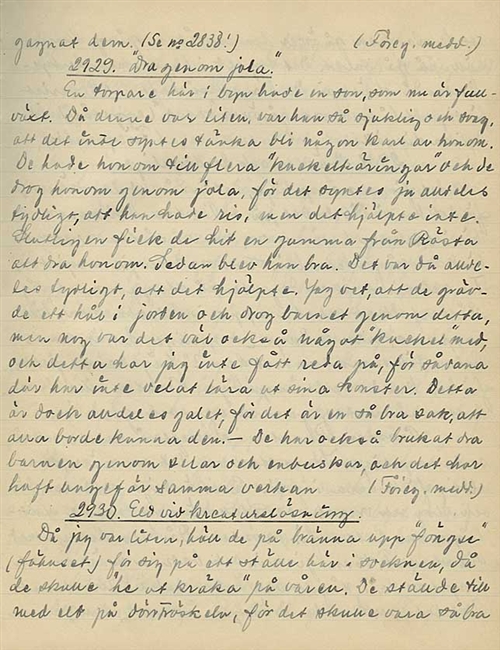 gagnat dem. (Se nº 2838!) (Föreg. medd.)
2929. "Dra genom jola."
En torpare här i byn hade en son, som nu är full-
växt. Då denne var liten, var han så sjuklig och svag,
att det inte syntes tänka bli någon karl av honom.
De hade honom till flera "kuckelkäringar" och de
drog honom genom jola, för det syntes ju alldeles
tydligt, att han hade ris, men det hjälpte inte.
Slutligen fick de hit en gumma från Råsta
att dra honom. Sedan blev han bra. Det var då allde-
les tydligt, att det hjälpte. Jag vet, att de gräv-
de ett hål i jorden och drog barnet genom detta,
men nog var det väl också något "kuckel" med,
och detta har jag inte fått reda på, för sådana
där har inte velat lära ut sina konster. Detta
är dock alldeles galet, för det är en så bra sak, att
alla borde kunna den. — De har också brukat dra
barnen genom selar och enbuskar, och det har
haft ungefär samma verkan (Föreg. medd.)
2930. Eld vid kreaturslösning.
Då jag var liten, höll de på bränna upp
(fähuset) för sig på ett ställe här i socknen, då
de skulle "he ut kräka" på våren. De ställde till
med eld på dörrtröskeln, för det skulle vara så bra